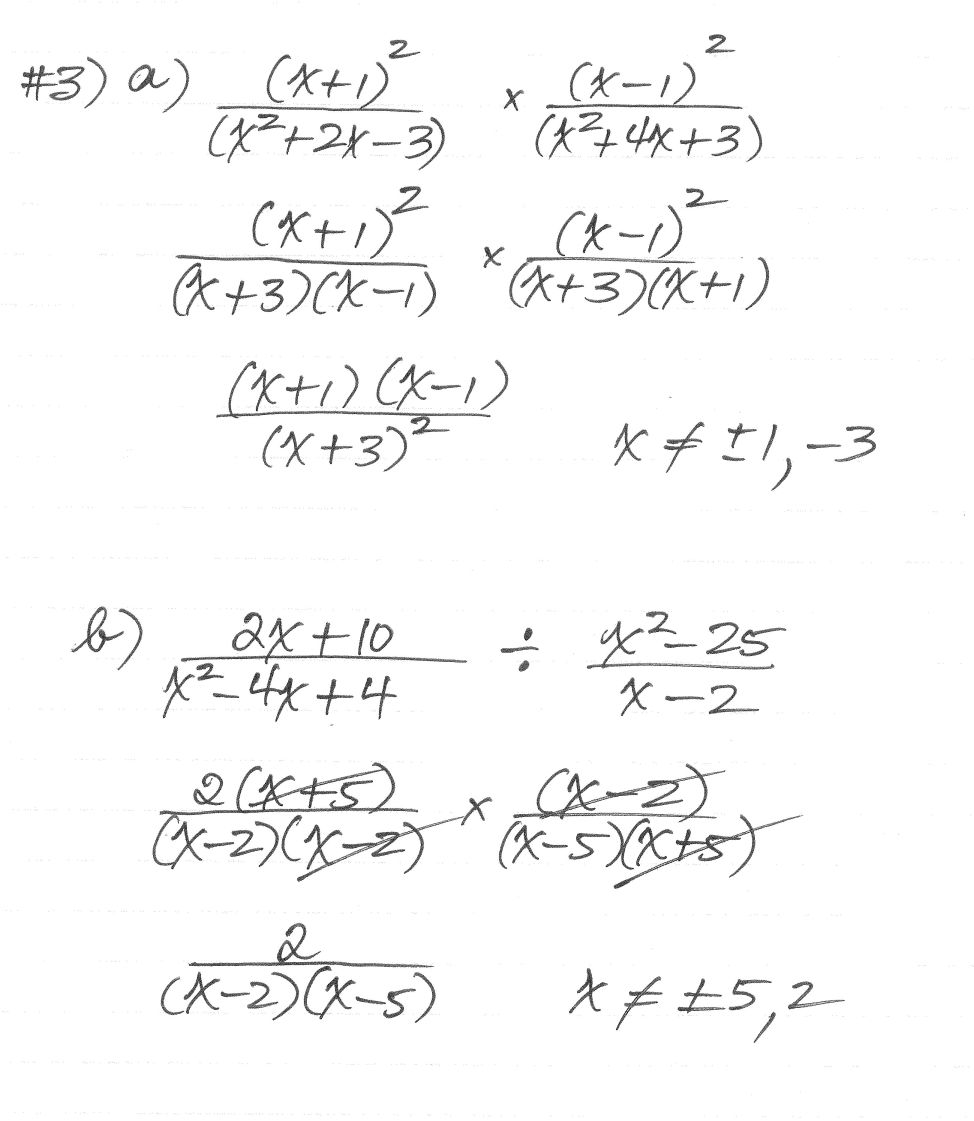 #3) a) (x+1)² / (x²+2x-3) × (x-1)² / (x²+4x+3)
(x+1)² / (x+3)(x-1) × (x-1)² / (x+3)(x+1)
(x+1)(x-1) / (x+3)² x ≠ ±1, -3
b) 2x+10 / x²-4x+4 ÷ x²-25 / x-2
2(x+5) / (x-2)(x-2) × (x-2) / (x-5)(x+5)
2 / (x-2)(x-5) x ≠ ±5, 2